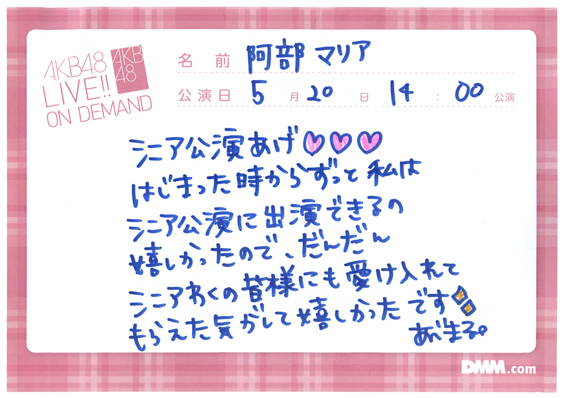 AKB48
LIVE!!
ON DEMAND
AKB
48
名前 阿部マリア
公演日 5月20日 14:00公演
シニア公演あげ♡♡♡
はじまった時からずっと私は
シニア公演に出演できるの
嬉しかったので、だんだん
シニアわくの皆様にも愛け入れて
もらえた気がして嬉しかったです
あべまる。
DMM.com